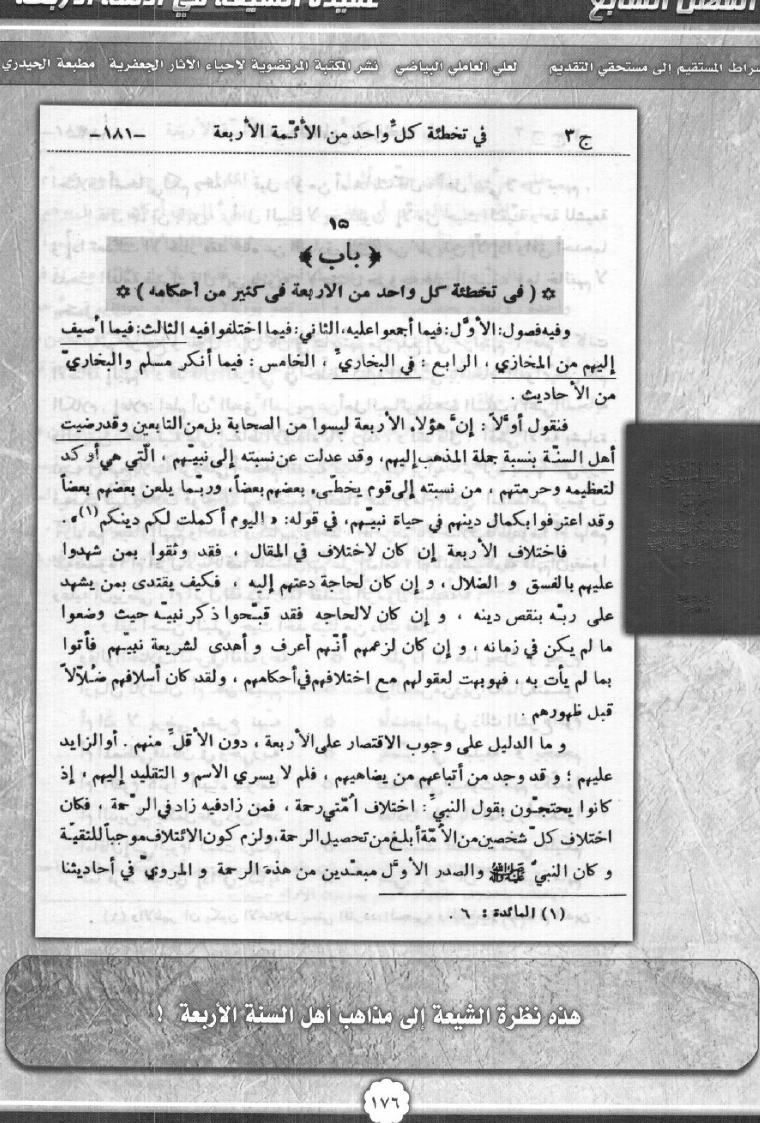 الفصل السابع
عقيدة الشيعة في الأئمة الأربعة
صراط المستقيم إلى مستحقي التقديم لعلي العاملي البياضي نشر المكتبة المرتضوية لإحياء الآثار الجعفرية مطبعة الحيدري
ج ٣ في تخطئة كلّ واحد من الأئـمة الأربعة -١٨١-
١٥
﴿ باب ﴾
✡ ( فى تخطئة كل واحد من الاربعة فى كثير من أحكامه ) ✡
وفيه فصول: الأوّل: فيما أجمعوا عليه، الثاني: فيما اختلفوا فيه الثالث: فيما أضيف
إليهم من المخازي ، الرابع : في البخاريّ ، الخامس : فيما أنكر مسلم والبخاريّ
من الأحاديث .
فنقول أوّلاً : إنّ هؤلاء الأربعة ليسوا من الصحابة بل من التابعين وقد رضيت
أهل السنّة بنسبة جملة المذهب إليهم، وقد عدلت عن نسبته إلى نبيّهم ، الّتي هي أوكد
لتعظيمه وحرمتهم ، من نسبته إلى قوم يخطّىء بعضهم بعضاً، وربّما يلعن بعضهم بعضاً
وقد اعترفوا بكمال دينهم في حياة نبيّهم، في قوله: « اليوم أكملت لكم دينكم(١)» .
فاختلاف الأربعة إن كان لاختلاف في المقال ، فقد وثقوا بمن شهدوا
عليهم بالفسق و الضلال ، و إن كان لحاجة دعتهم إليه ، فكيف يقتدى بمن يشهد
على ربّه بنقص دينه ، و إن كان لالحاجه فقد قبّحوا ذكر نبيّه حيث وضعوا
ما لم يكن في زمانه ، و إن كان لزعمهم أنّهم أعرف و أهدى لشريعة نبيّهم فأتوا
بما لم يأت به ، فهو بهت لعقولهم مع اختلافهم في أحكامهم ، ولقد كان أسلافهم ضلّالاً
قبل ظهورهم .
و ما الدليل على وجوب الاقتصار على الأربعة ، دون الأقلّ منهم . أو الزايد
عليهم ؛ و قد وجد من أتباعهم من يضاهيهم ، فلم لا يسري الاسم و التقليد إليهم ، إذ
كانوا يحتجّون بقول النبيّ : اختلاف اُمّتي رحمة ، فمن زاد فيه زاد في الرّحمة ، فكان
اختلاف كلّ شخصين من الأمّة أبلغ من تحصيل الرحمة، ولزم كون الائتلاف موجباً للنقيّة
و كان النبيّ ﷺ والصدر الأوّل مبعّدين من هذه الرحمة و المرويّ في أحاديثنا
(١) المائدة : ٦ .
هذه نظرة الشيعة إلى مذاهب أهل السنة الأربعة !
١٧٦